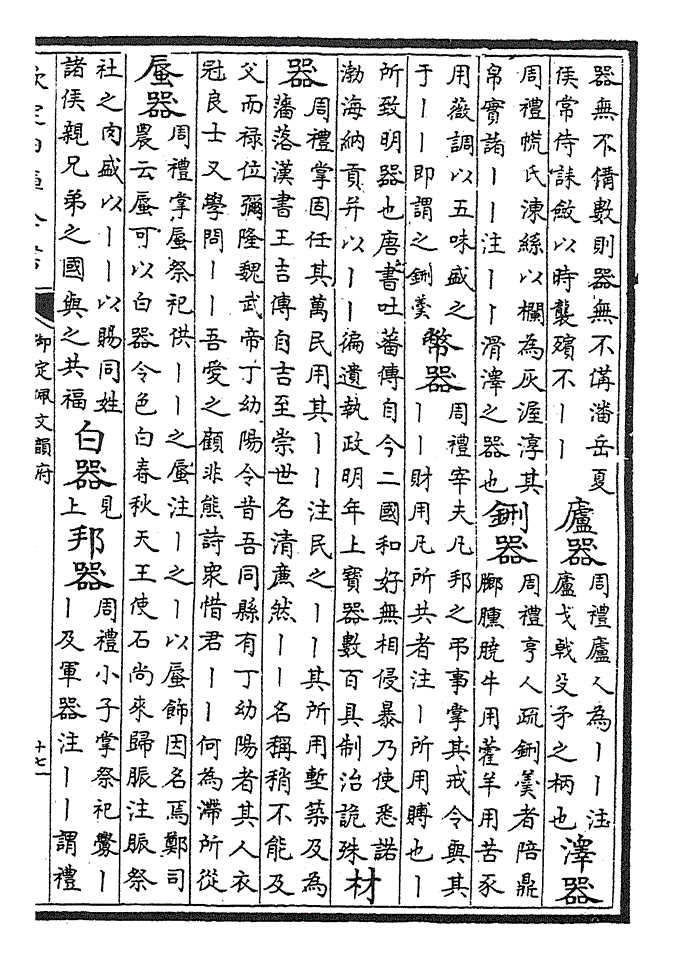 器無不備數則器無不備潘岳夏
侯常侍誄斂以時襲殯不丨丨
廬器
周禮廬人為丨丨注
廬戈戟殳矛之柄也
澤器
周禮㡛氏湅絲以欄為灰渥淳其
帛實諸丨丨注丨丨滑澤之器也
鉶器
周禮亨人疏鉶羹者陪鼎
膷臐膮牛用藿羊用苦豕
用薇調以五味盛之
于丨丨即謂之鉶羹
幣器
周禮宰夫凡邦之弔事掌其戒令與其
丨丨財用凡所共者注丨所用賻也丨
所致明器也唐書吐蕃傳自今二國和好無相侵暴乃使悉諾
渤海納貢并以丨丨徧遺執政明年上寶器數百具制治詭殊
材
器
周禮掌固任其萬民用其丨丨注民之丨丨其所用塹築及為
藩落漢書王吉傳自吉至崇世名清廉然丨丨名稱稍不能及
父而祿位彌隆魏武帝丁幼陽令昔吾同縣有丁幼陽者其人衣
冠良士又學問丨丨吾愛之顧非熊詩衆惜君丨丨何為滯所從
蜃器
周禮掌蜃祭祀供丨丨之蜃注丨之丨以蜃飾因名焉鄭司
農云蜃可以白器令色白春秋天王使石尚來歸脤注脤祭
社之肉盛以丨丨以賜同姓
諸侯親兄弟之國與之共福
白器
見
上
邦器
周禮小子掌祭祀釁丨
丨及軍器注丨丨謂禮
欽定四庫全書
御定佩文韻府
十七